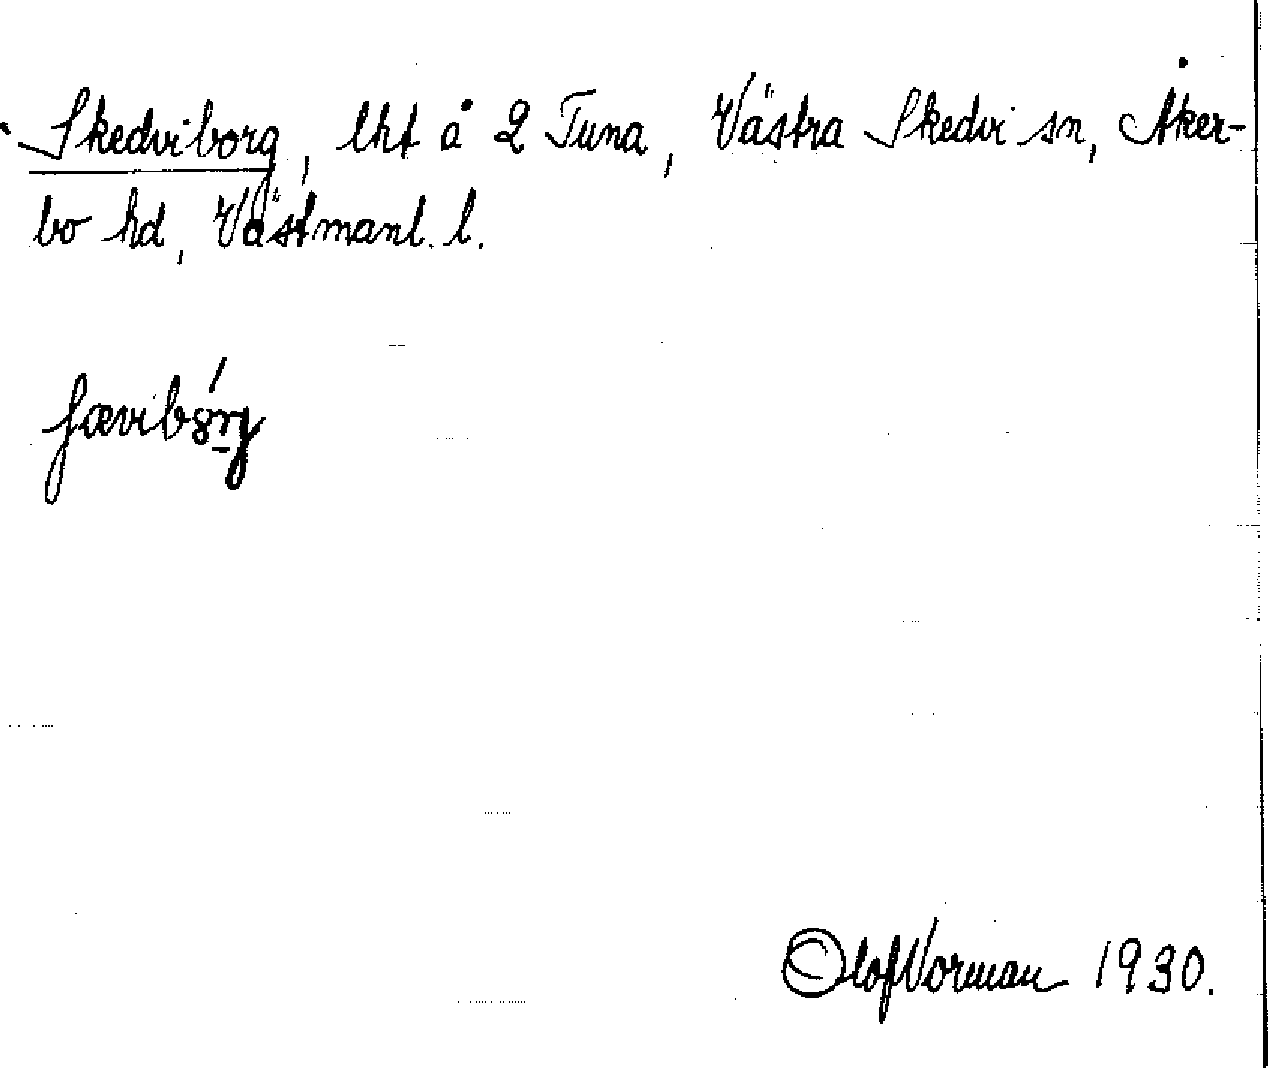 Skedviborg, lht å 2 Tuna, Västra Skedvi sn, Åker-
bo hd, Västmanl. l.
Olof Norman 1930.